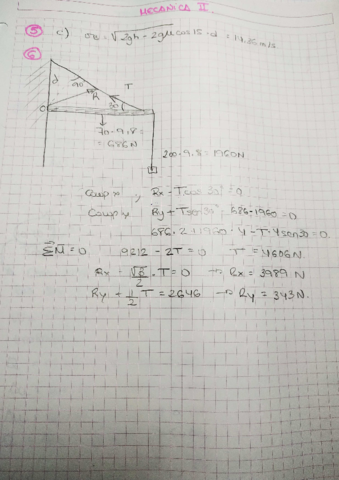 MECANICA II
5 c) vB = √2gh - 2gμ cos 15 · d = 14.15 m/s
6
d 90 T
R 30
O
70 - 9.8 =
= 686N
200 - 9.8 = 1960N
Comp x, Rx - T cos 30 = 0
Comp y Ry + T sen 30 - 686 - 1960 = 0
686 · 2 + 1960 · 4 - T · 4 sen 30 = 0
ΣM = 0 9212 - 2T = 0 T = 4606N
Rx - √3/2 · T = 0 → Rx = 3989 N
Ry + 1/2 T = 2646 → Ry = 343 N.